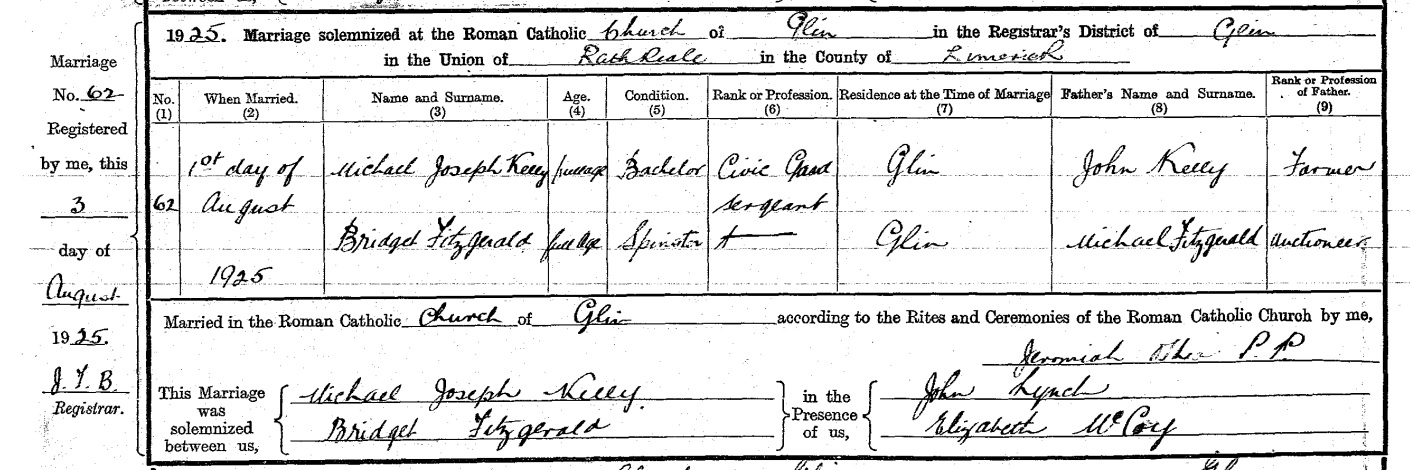 1925. Marriage solemnized at the Roman Catholic Church of Glin in the Registrar's District of Glin
in the Union of Rathkeale in the County of Limerick
Marriage
No. 62
Registered
by me, this
3
day of
August
1925.
J. T. B.
Registrar.
No. (1) When Married. (2) Name and Surname. (3) Age. (4) Condition. (5) Rank or Profession. (6) Residence at the Time of Marriage (7) Father's Name and Surname. (8) Rank or Profession of Father. (9)
1st day of Michael Joseph Kelly full age Bachelor Civic Gard Glin John Kelly Farmer
62 August sergeant
Bridget Fitzgerald full Age Spinster Glin Michael Fitzgerald Auctioneer
1925
Married in the Roman Catholic Church of Glin according to the Rites and Ceremonies of the Roman Catholic Church by me,
Jeremiah P. P.
This Marriage was solemnized between us,
Michael Joseph Kelly.
Bridget Fitzgerald
in the Presence of us,
John Lynch
Elizabeth McCoy